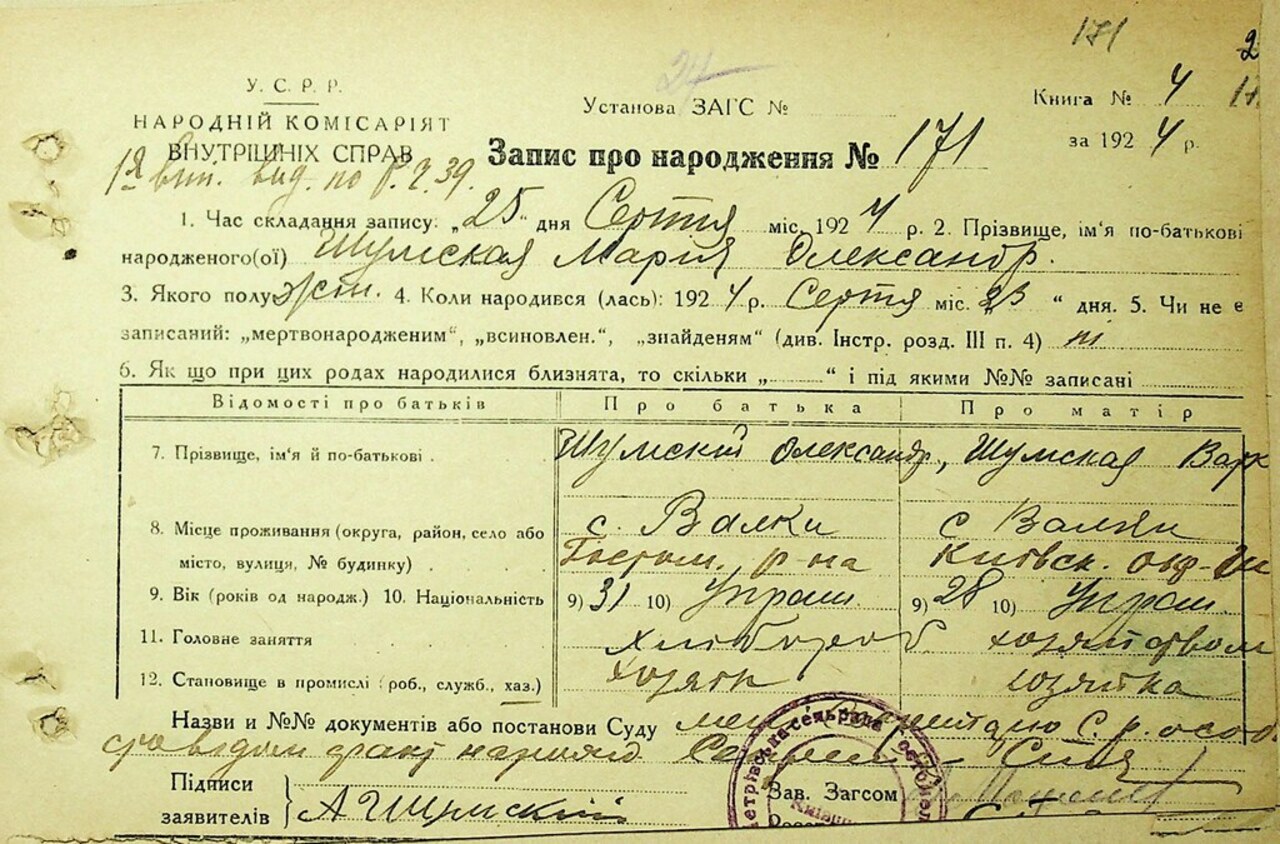 171
2
У. С. Р. Р.
НАРОДНІЙ КОМІСАРІЯТ
ВНУТРІШНІХ СПРАВ
24
Установа ЗАГС №
Книга № 4
за 1924 р.
Запис про народження № 171
вид. по 39.
1. Час складання запису: „25" дня Серпня міс. 1924 р. 2. Прізвище, ім'я по-батькові
народженого(ої) Шумская Мария Олександр.
3. Якого полу жін. 4. Коли народився (лась): 1924 р. Серпня міс. 23 " дня. 5. Чи не є
записаний: „мертвонародженим", „всиновлен.", „знайденям" (див. Інстр. розд. III п. 4) ні
6. Як що при цих родах народилися близнята, то скільки „ " і під якими №№ записані
Відомості про батьків Про батька Про матір
7. Прізвище, ім'я й по-батькові . Шумский Олександр, Шумская Варк
8. Місце проживання (округа, район, село або с. Валки с Валки
місто, вулиця, № будинку) . Гостом. р-на Київск. окр-ги
9. Вік (років од народж.) 10. Національність 9) 31 10) Украш. 9) 28 10) Украш.
11. Головне заняття хлібороб хозяйством
12. Становище в промислі (роб., служб., хаз.) хозяїн хозяйка
Назви и №№ документів або постанови Суду С. р. особ
факт
Підписи
заявителів
А Шумский
Зав. Загсом